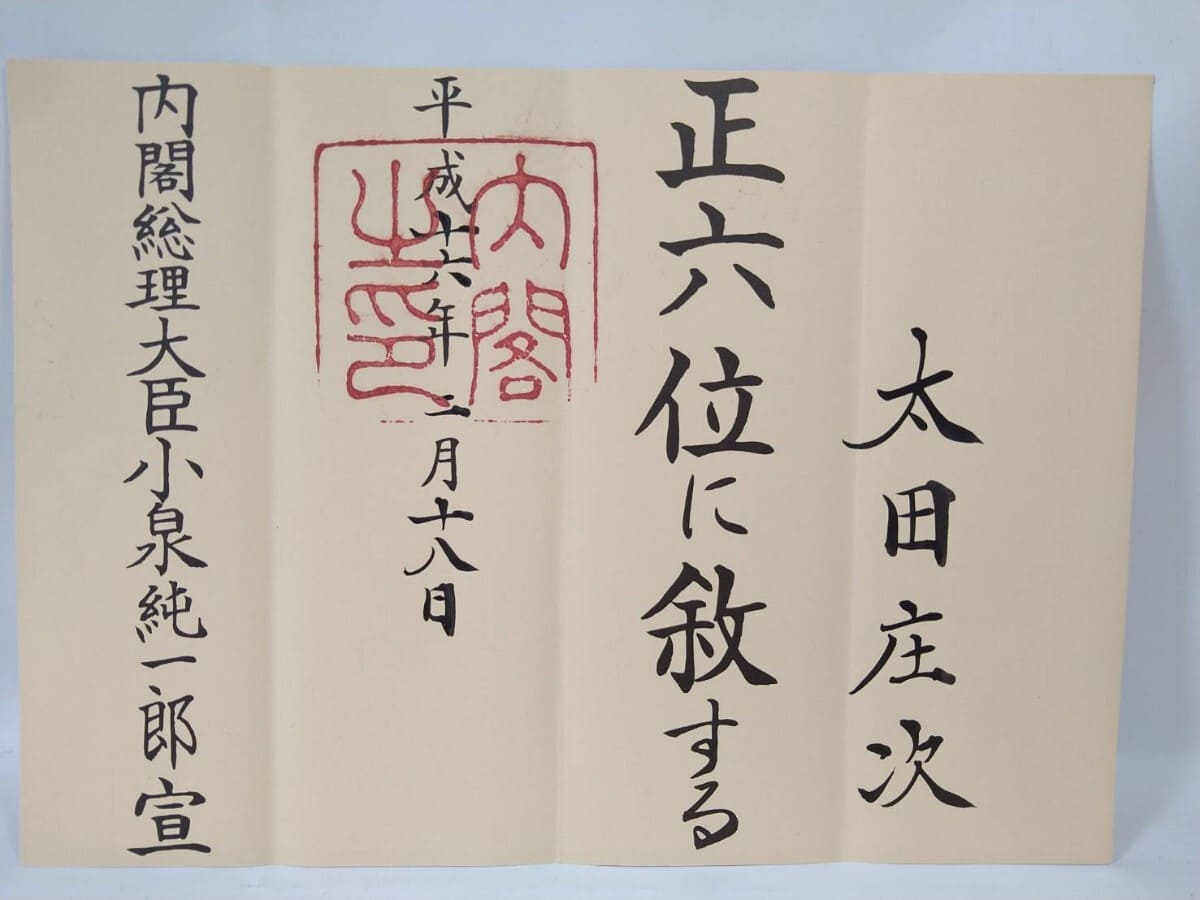 太田庄次
正六位に敘する
平成十六年二月十八日
内閣之印
内閣総理大臣小泉純一郎宣